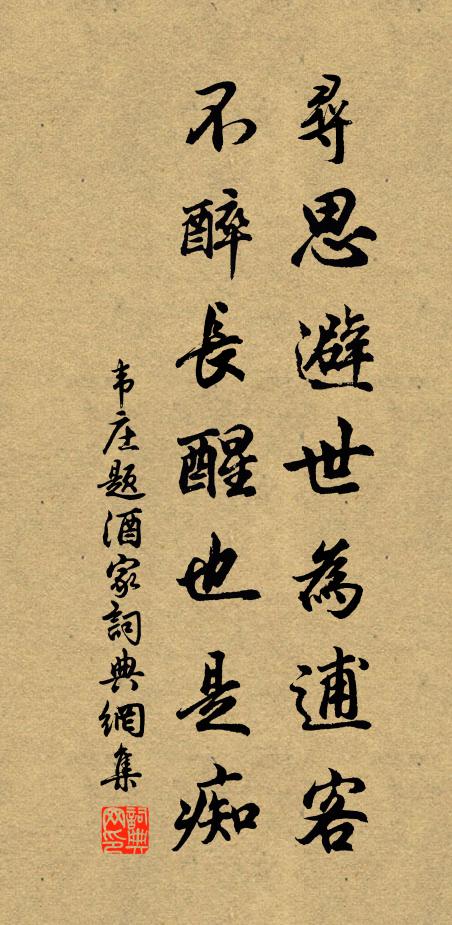 尋思避世為逋客
不醉長醒也是痴
韦庄题酒家詞典網集
詞典网印